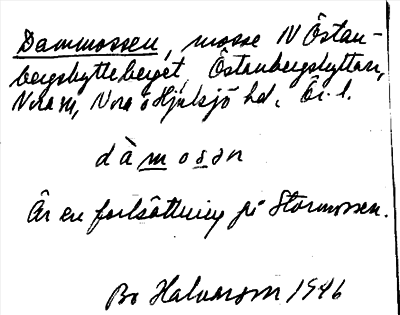 Dammossen, mosse N Östan-
bergshytteberget, Östanbergshyttan,
Nora sn, Nora o Hjulsjö hd. Ör. l.
dàmosan
Är en fortsättning på Stormossen.
Bo Halvarson 1946